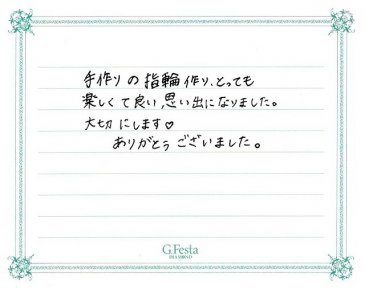 手作りの指輪作り、とっても
楽しくて良い思い出になりました。
大切にします♡
ありがとうございました。
G.Festa
DIAMOND